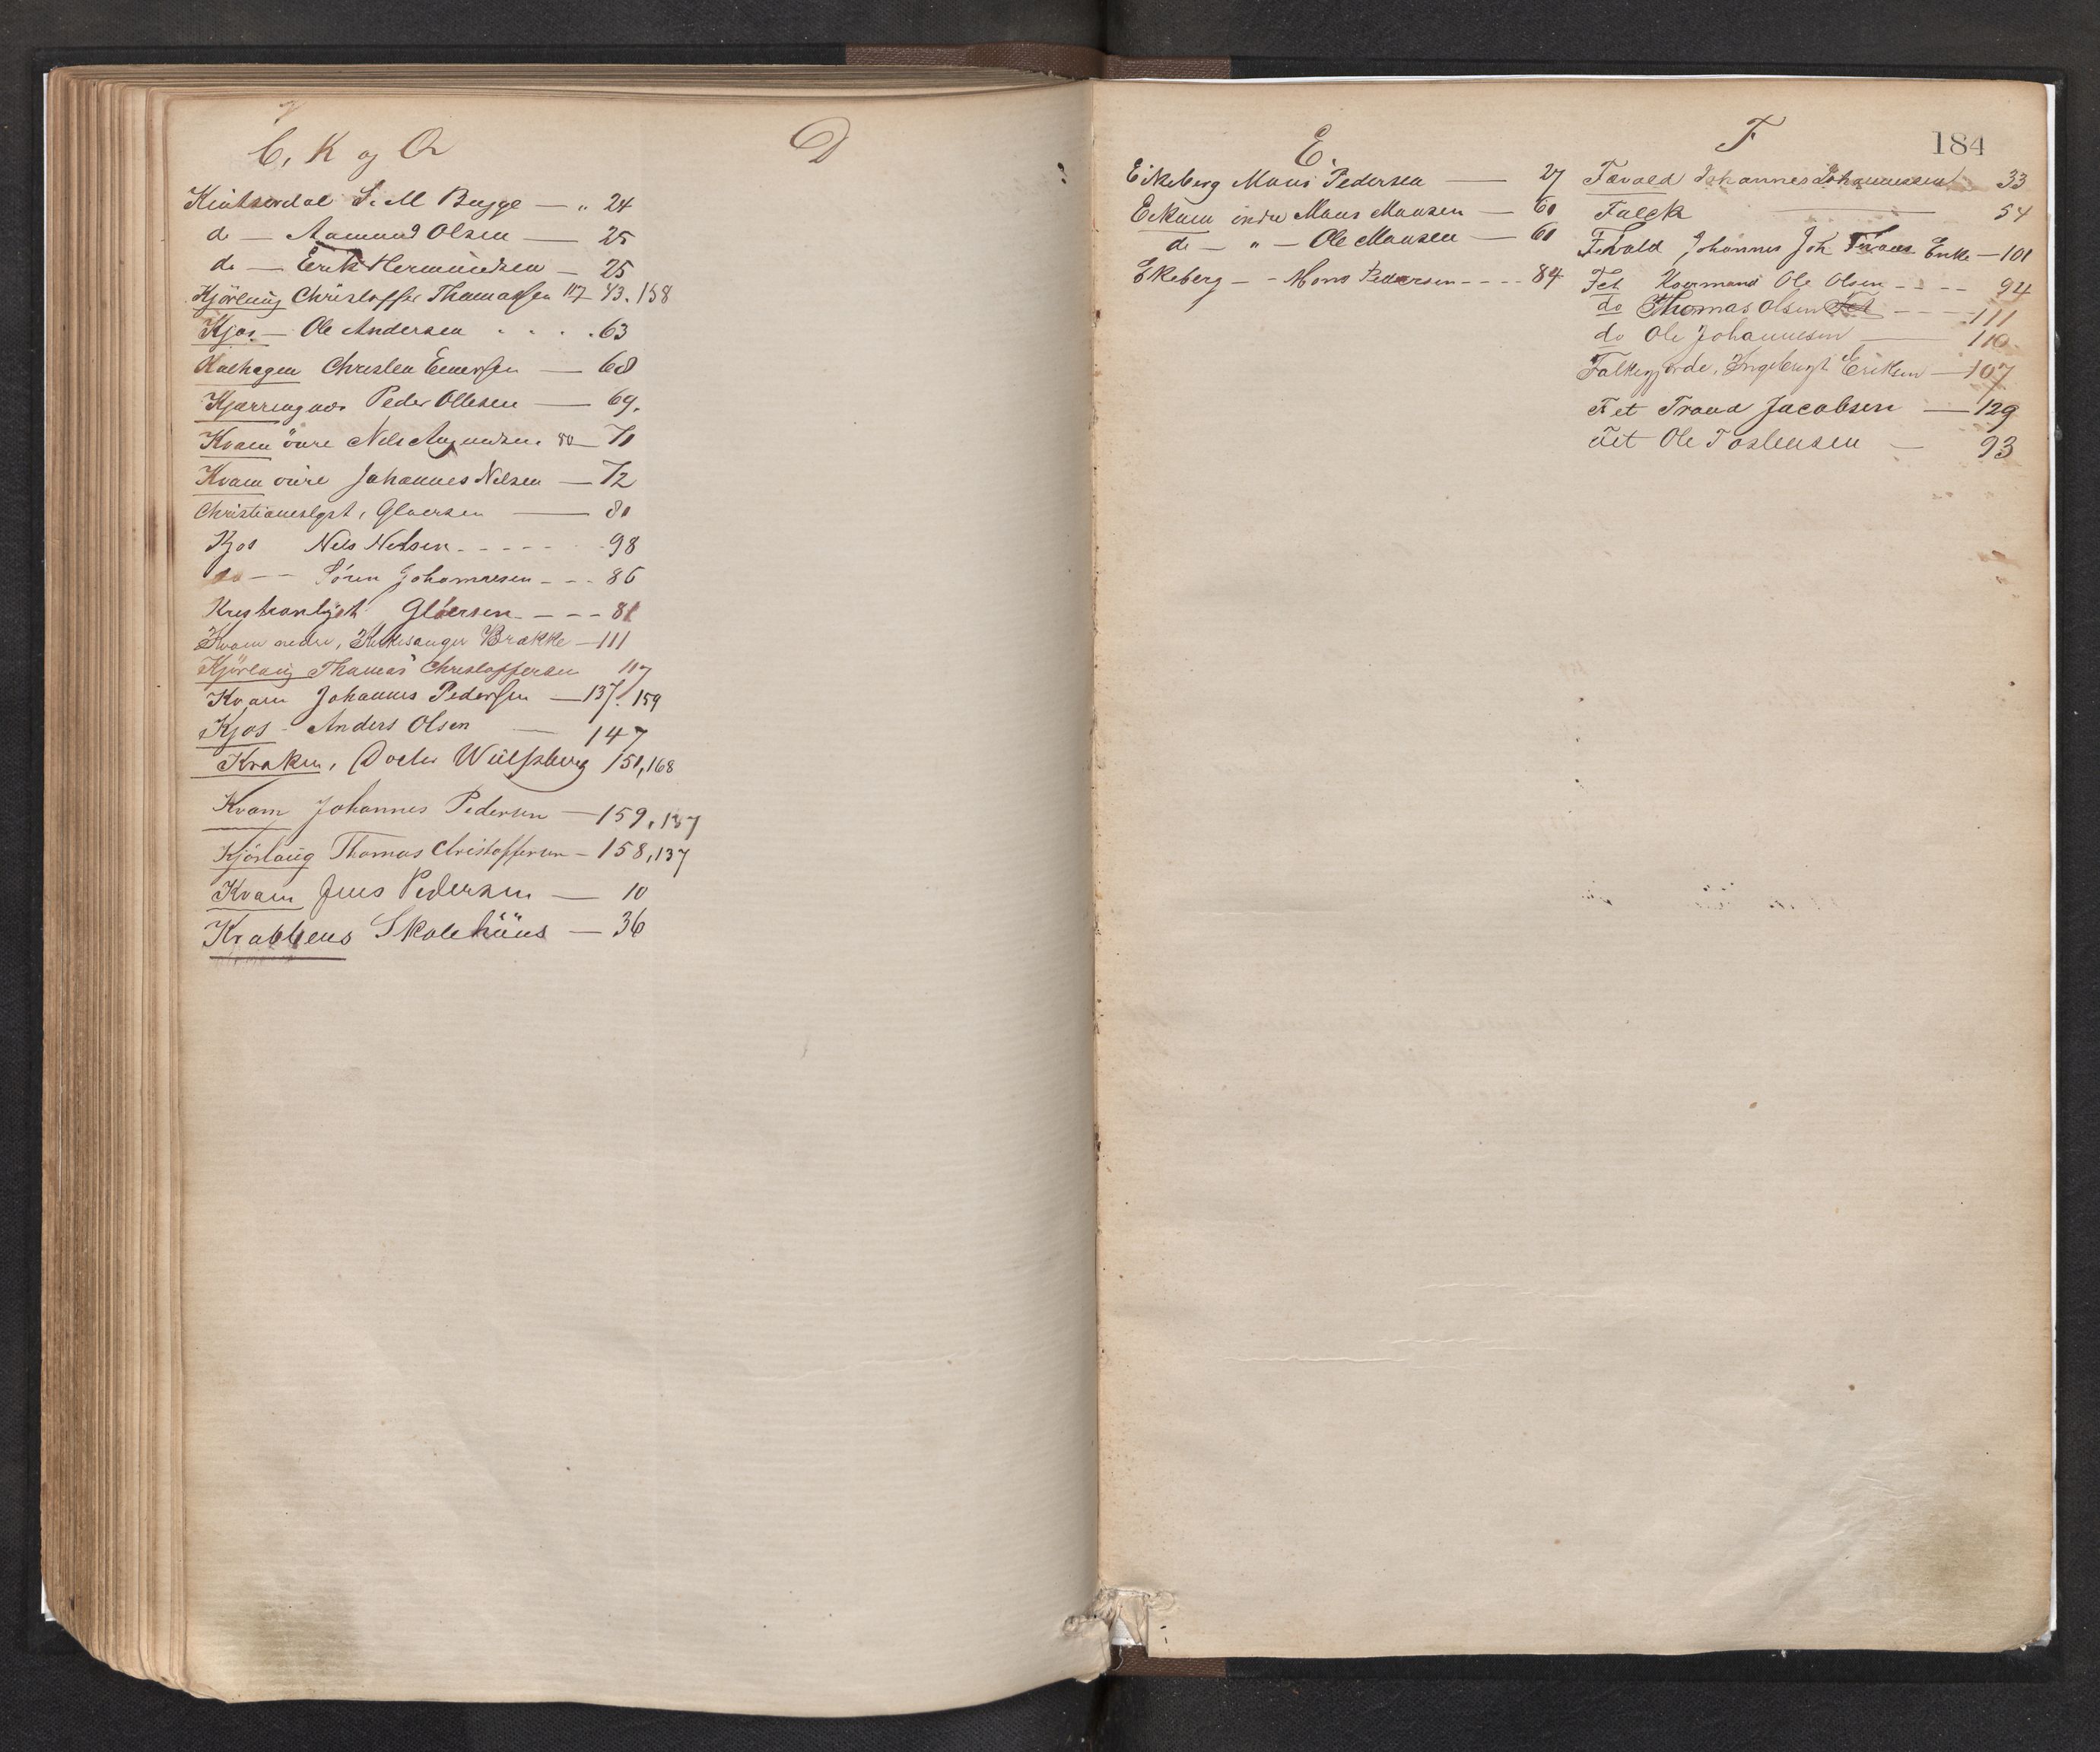 C, K og Q
Kintserdal S. M Bugge — „ 24
do — Aamund Olsen — 25
do — Erik Hermundsen — 25
Kjörlaug Christoffer Thomassen 117 43. 158
Kjos — Ole Andersen . . . . 63
Christen Einersen — 68
Kjærringnæs Peder Ollesen — 69.
Kvam övre Nels Amundsen 50 — 71
Kvam övre Johannes Nilsen — 72
Christianslyst, Gloersen — 81
Kjos Nels Nelsen - - - - - 98
do — Sören Johannesen - - - 86
Kristianlyst Gloersen - - - 81
Kvam nedre, Kirkesanger Brække — 111
Kjörlaug Thomas Christoffersen 117
Kvam Johannes Pedersen — 137. 159
Kjos - Anders Olsen — 147
Kraken, Doctor Wülfsberg 151, 168
Kvam Johannes Pedersen — 159, 137
Kjörlaug Thomas Christoffersen — 158, 137
Kvam Jens Pedersen — 10
Krabbens Skolehüus — 36
D
E.
Eikeberg Mons Pedersen — 27
Eekum indre Mons Monsen — 61
do — „ — Ole Monsen — 61
Ekeberg — - Mons Pedersen - - - - 84
F
184
Tævold Johannes Johannesen 33
Falck — 54
Fevold Johannes Joh Enke — 101
Fet Ole Olsen - - - - 94
do Thomas Olsen - - - 111
do Ole Johannesen — 110
Falkegjerde, Ingebrigt Eriksen — 107
Fet Trond Jacobsen — 129
Fet Ole Tostensen — 93